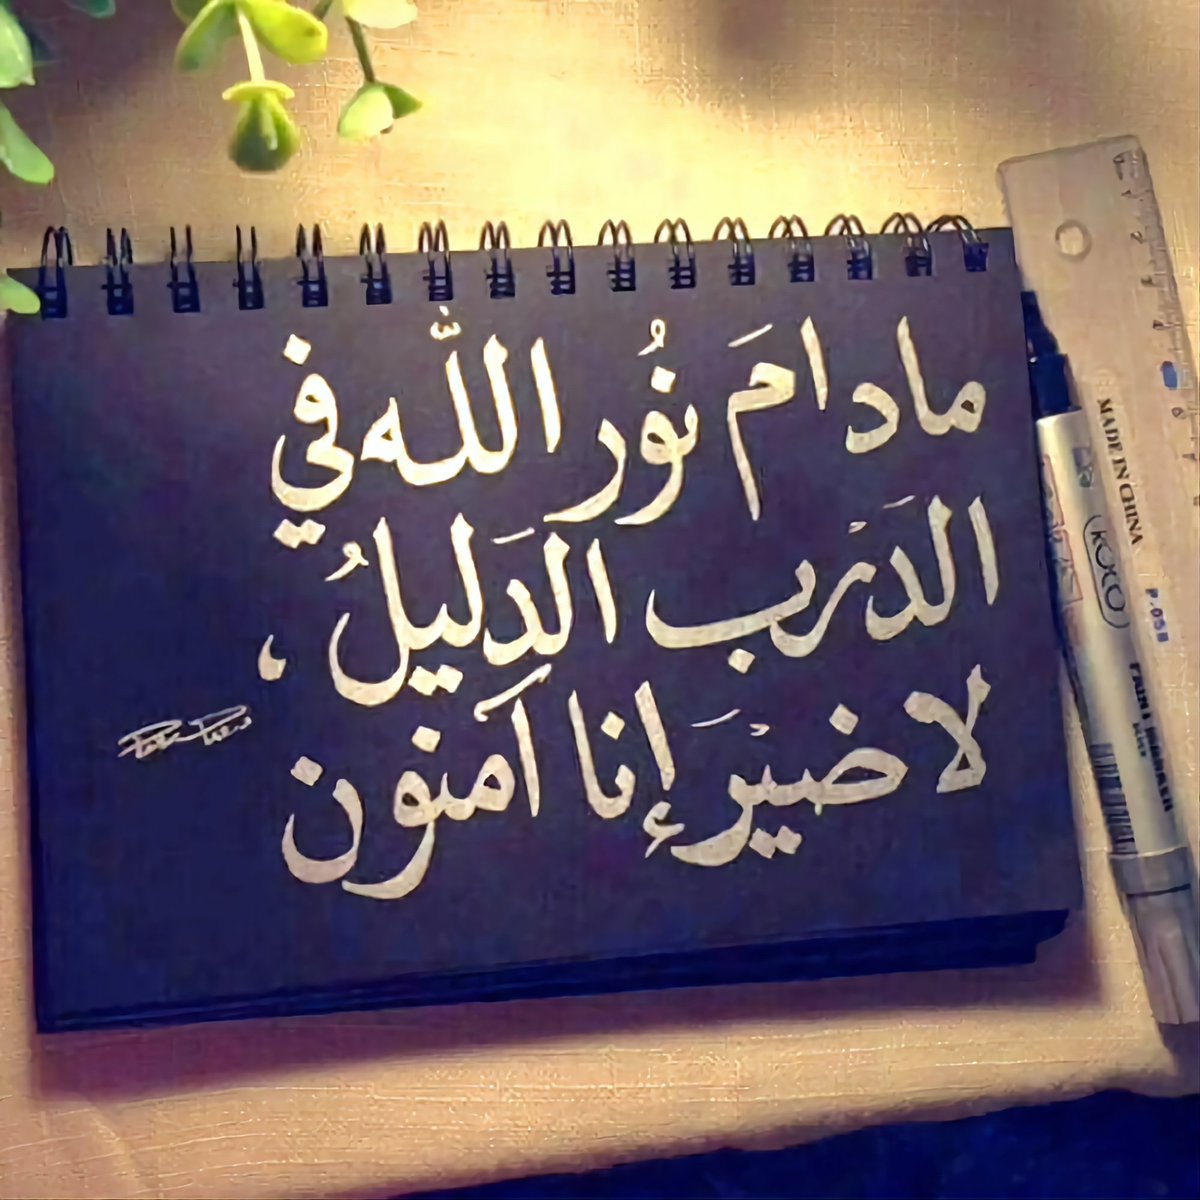 مادامَ نُور اللّه في
الدَرْب الدَليلُ ،
لا ضَيْر إنا آمنون
MADE IN CHINA
KOCO
P-058
PAINT MARKER